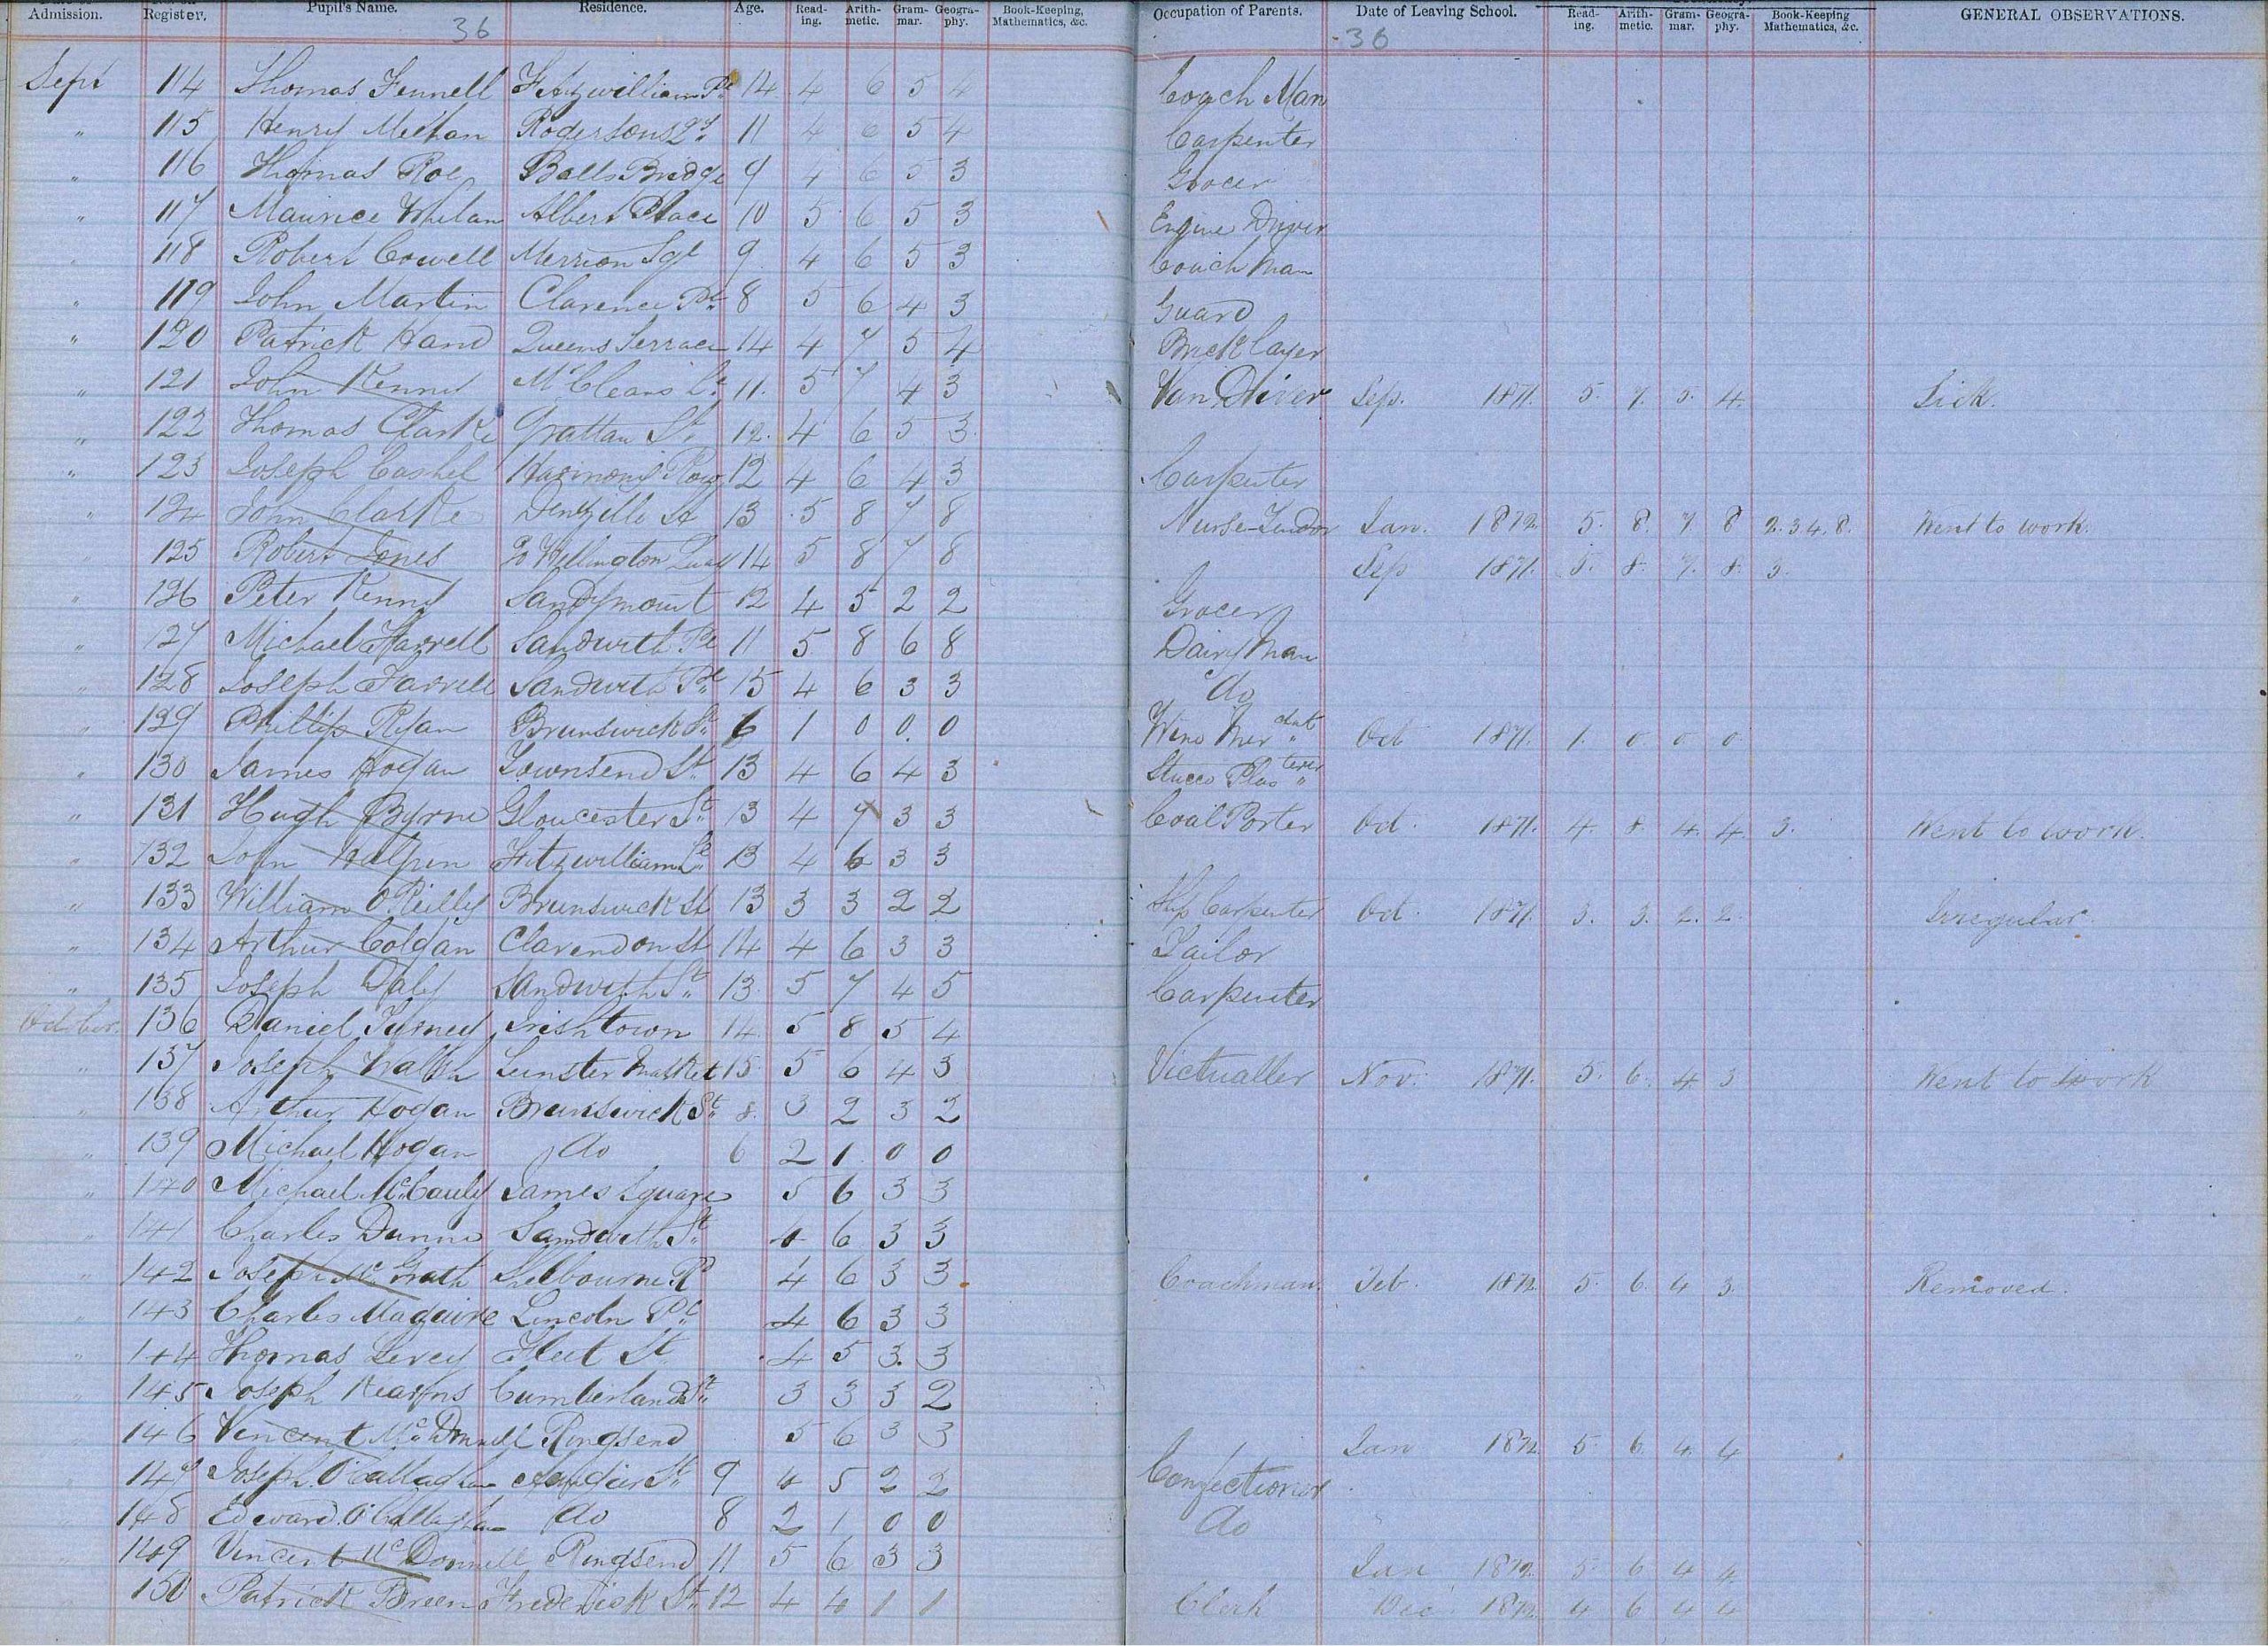 Admission. Register. Pupil's Name. Residence. Age. Read-ing. Arith-metic. Gram-mar. Geogra-phy. Book-Keeping, Mathematics, &c. Occupation of Parents. Date of Leaving School. Read-ing. Arith-metic. Gram-mar. Geogra-phy. Book-Keeping Mathematics, &c. GENERAL OBSERVATIONS.
36 36
Sept 114 Thomas Fennell Fitzwilliam Pl 14 4 6 5 4 Coach Man
" 115 Henry Meehan Rodgersons Qy 11 4 6 5 4 Carpenter
" 116 Thomas Roe Balls Bridge 9 4 6 5 3 Grocer
" 117 Maurice Whelan Albert Place 10 5 6 5 3 Engine Driver
" 118 Robert Cowell Merrion Sqe 9 4 6 5 3 Coach Man
" 119 John Martin Clarence Pl 8 5 6 4 3 Guard
" 120 Patrick Hand Queens Terrace 14 4 7 5 4 Brick layer
" 121 John Kenny McCleans La 11. 5 7 4 3 Van Driver Sep. 1871. 5. 7. 5. 4. Sick.
" 122 Thomas Clarke Grattan St 12. 4 6 5 3
" 123 Joseph Cashel Harmony Row 12 4 6 4 3 Carpenter
" 124 John Clarke Denzille St 13 5 8 7 8 Nurse-Tendor Jan. 1872. 5. 8. 7. 8 2.3.4.8. Went to work.
" 125 Robert Jones Wellington Quay 14 5 8 7 8 Sep 1871. 5. 8. 7. 8. 3.
" 126 Peter Kenny Sandymount 12 4 5 2 2 Grocer
" 127 Michael Farrell Sandwith Pl 11 5 8 6 8 Dairy Man
" 128 Joseph Farrell Sandwith Pl 15 4 6 3 3 do
" 129 Phillip Ryan Brunswick St 6 1 0 0. 0 Wine Merchant Oct 1871. 1. 0. 0 0
" 130 James Hogan Townsend St 13 4 6 4 3 Stucco Plasterer
" 131 Hugh Byrne Gloucester St 13 4 7 3 3 Coal Porter Oct. 1871. 4. 8. 4. 4. 3. Went to work.
" 132 John Halpin Fitzwilliam La 13 4 6 3 3
" 133 William O'Reilly Brunswick St 13 3 3 2 2 Ship Carpenter Oct. 1871. 3. 3. 2. 2. Irregular.
" 134 Arthur Colgan Clarendon St 14 4 6 3 3 Tailor
" 135 Joseph Daly Sandwith St 13. 5 7 4 5 Carpenter
October. 136 Daniel Tierney Irishtown 14. 5 8 5 4
" 137 Joseph Walsh Leinster Market 15. 5 6 4 3 Victualler Nov. 1871. 5. 6. 4 3 Went to work
" 138 Arthur Hogan Brunswick St 8. 3 2 3 2
" 139 Michael Hogan do 6 2 1 0 0
" 140 Michael McCauly James Square 5 6 3 3
" 141 Charles Dunne Sandwith St 4 6 3 3
" 142 Joseph McGrath Shelbourne Rd 4 6 3 3 Coachman. Feb. 1872 5. 6. 4 3. Removed.
" 143 Charles Maguire Lincoln Pl 4 6 3 3
" 144 Thomas Levey Fleet St 4 5 3. 3
" 145 Joseph Kearns Cumberland St 3 3 3 2
" 146 Vincent McDonnell Ringsend 5 6 3 3 Jan 1872. 5. 6. 4. 4
" 147 Joseph O'Callaghan St 9 4 5 2 2 Confectioner
" 148 Edward O'Callaghan do 8 2 1 0 0 do
" 149 Vincent McDonnell Ringsend 11 5 6 3 3 Jan 1872. 5 6 4 4.
150 Patrick Breen Frederick St 12 4 4 1 1 Clerk Dec 1872 4 6 4 4